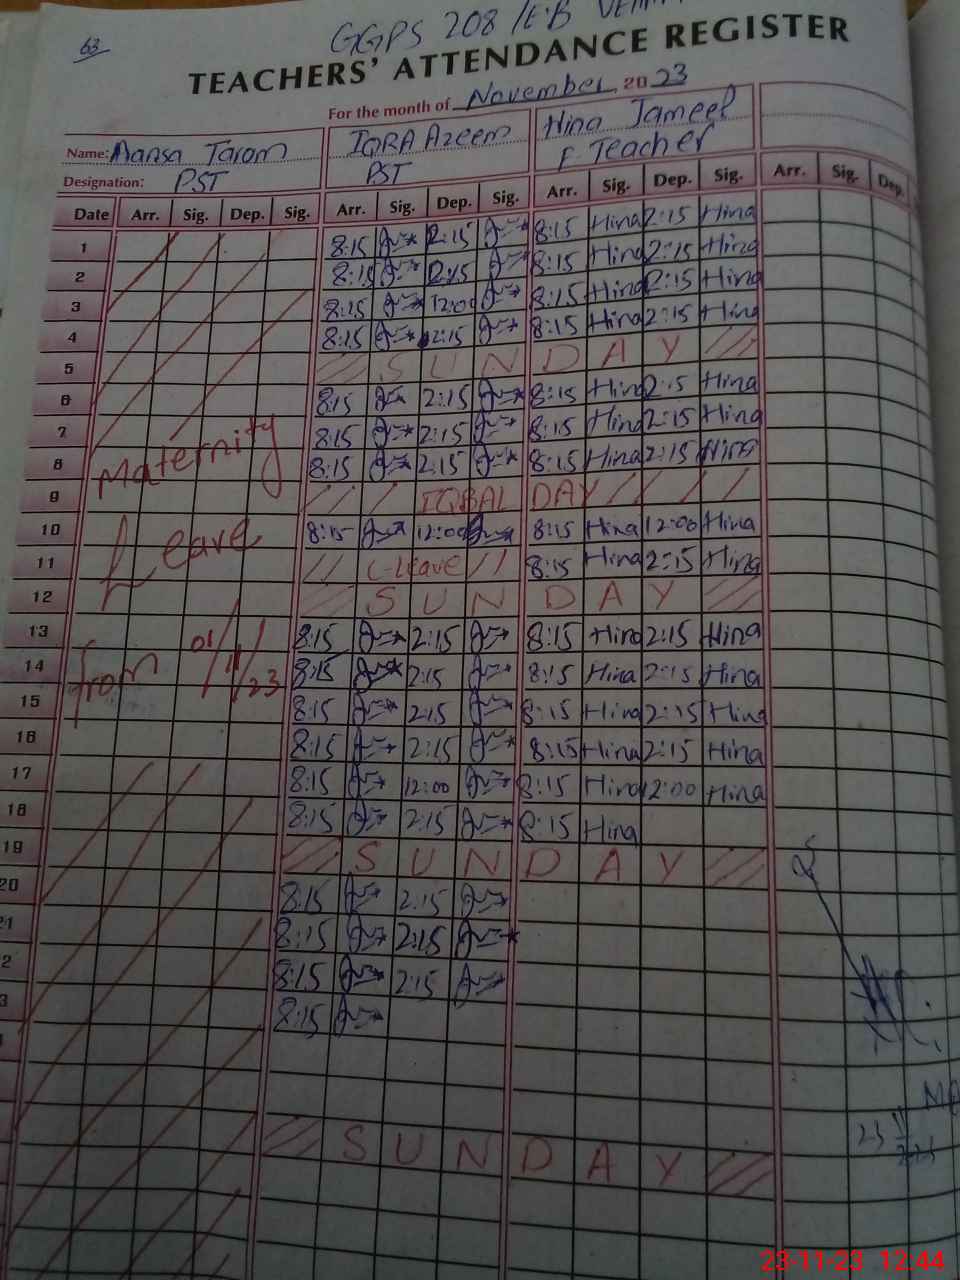 63
GGPS 208/E.B
TEACHERS' ATTENDANCE REGISTER
For the month of November 2023
Name: Aansa Tarom IQRA Azeem Hina Jameel
Designation: PST PST F. Teacher
Date Arr. Sig. Dep. Sig. Arr. Sig. Dep. Sig. Arr. Sig. Dep. Sig. Arr. Sig. Dep.
1 8:15 2:15 8:15 Hina 2:15 Hina
2 8:15 2:15 8:15 Hina 2:15 Hina
3 8:15 12:00 8:15 Hina 2:15 Hina
4 8:15 2:15 8:15 Hina 2:15 Hina
5 SUNDAY
6 8:15 2:15 8:15 Hina 2:15 Hina
7 8:15 2:15 8:15 Hina 2:15 Hina
8 Maternity 8:15 2:15 8:15 Hina 2:15 Hina
9 IQBAL DAY
10 Leave 8:15 12:00 8:15 Hina 12:00 Hina
11 C-leave 8:15 Hina 2:15 Hina
12 SUNDAY
13 8:15 2:15 8:15 Hina 2:15 Hina
14 from 01/11/23 8:15 2:15 8:15 Hina 2:15 Hina
15 8:15 2:15 8:15 Hina 2:15 Hina
16 8:15 2:15 8:15 Hina 2:15 Hina
17 8:15 12:00 8:15 Hina 12:00 Hina
18 8:15 2:15 8:15 Hina
19 SUNDAY
20 8:15 2:15
21 8:15 2:15
2 8:15 2:15
3 8:15
SUNDAY
23-11-23 12:44